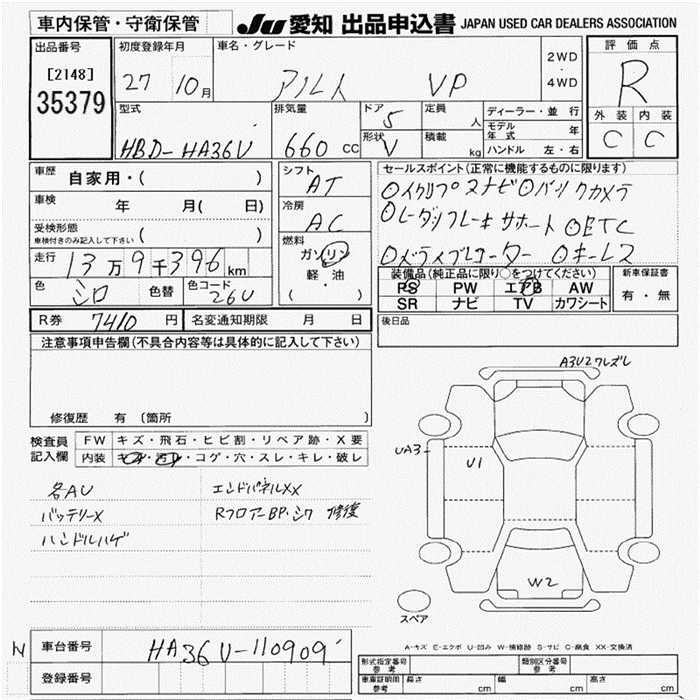 車内保管・守衛保管
JU 愛知 出品申込書 JAPAN USED CAR DEALERS ASSOCIATION
出品番号
[2148]
35379
初度登録年月
27 10月
車名・グレード
アルト VP
2WD
・
4WD
評価点
R
外装 内装
C C
型式
HBD-HA36V
排気量
660 cc
ドア 5
形状 V
定員 人
積載 kg
ディーラー・並行
モデル年式 年
ハンドル 左・右
車歴 自家用・( )
車検 年 月( 日)
受検形態
車検付きのみ記入して下さい ( )
走行 13万9千396 km
色 シロ 色替 色コード 26U
シフト AT
冷房 AC
燃料
ガソリン
軽・油
( ・ )
セールスポイント(正常に機能するものに限ります)
○イクリプスナビ○バックカメラ
○レーダーブレーキサポート ○ETC
○ドライブレコーダー ○キーレス
装備品(純正品に限り○をつけてください)
PS PW エアB AW
SR ナビ TV カワシート
新車保証書
有・無
R券 7410 円 名変通知期限 月 日
後日品
注意事項申告欄(不具合内容等は具体的に記入して下さい)
修復歴 有(箇所 )
検査員記入欄
FW キズ・飛石・ヒビ割・リペア跡・X要
内装 キズ・汚レ・コゲ・穴・スレ・キレ・破レ
各AU エンドパネルXX
バッテリーX RフロアーBP.シワ 修復
ハンドルハゲ
A3U2ワレズレ
UA3
U1
W2
スペア
A-キズ E-エクボ U-凹み W-補修跡 S-サビ C-腐食 XX-交換済
N 車台番号 HA36V-110909
登録番号
型式指定番号 参考
類別区分番号 参考
車庫証明用 参考 長さ cm 幅 cm 高さ cm